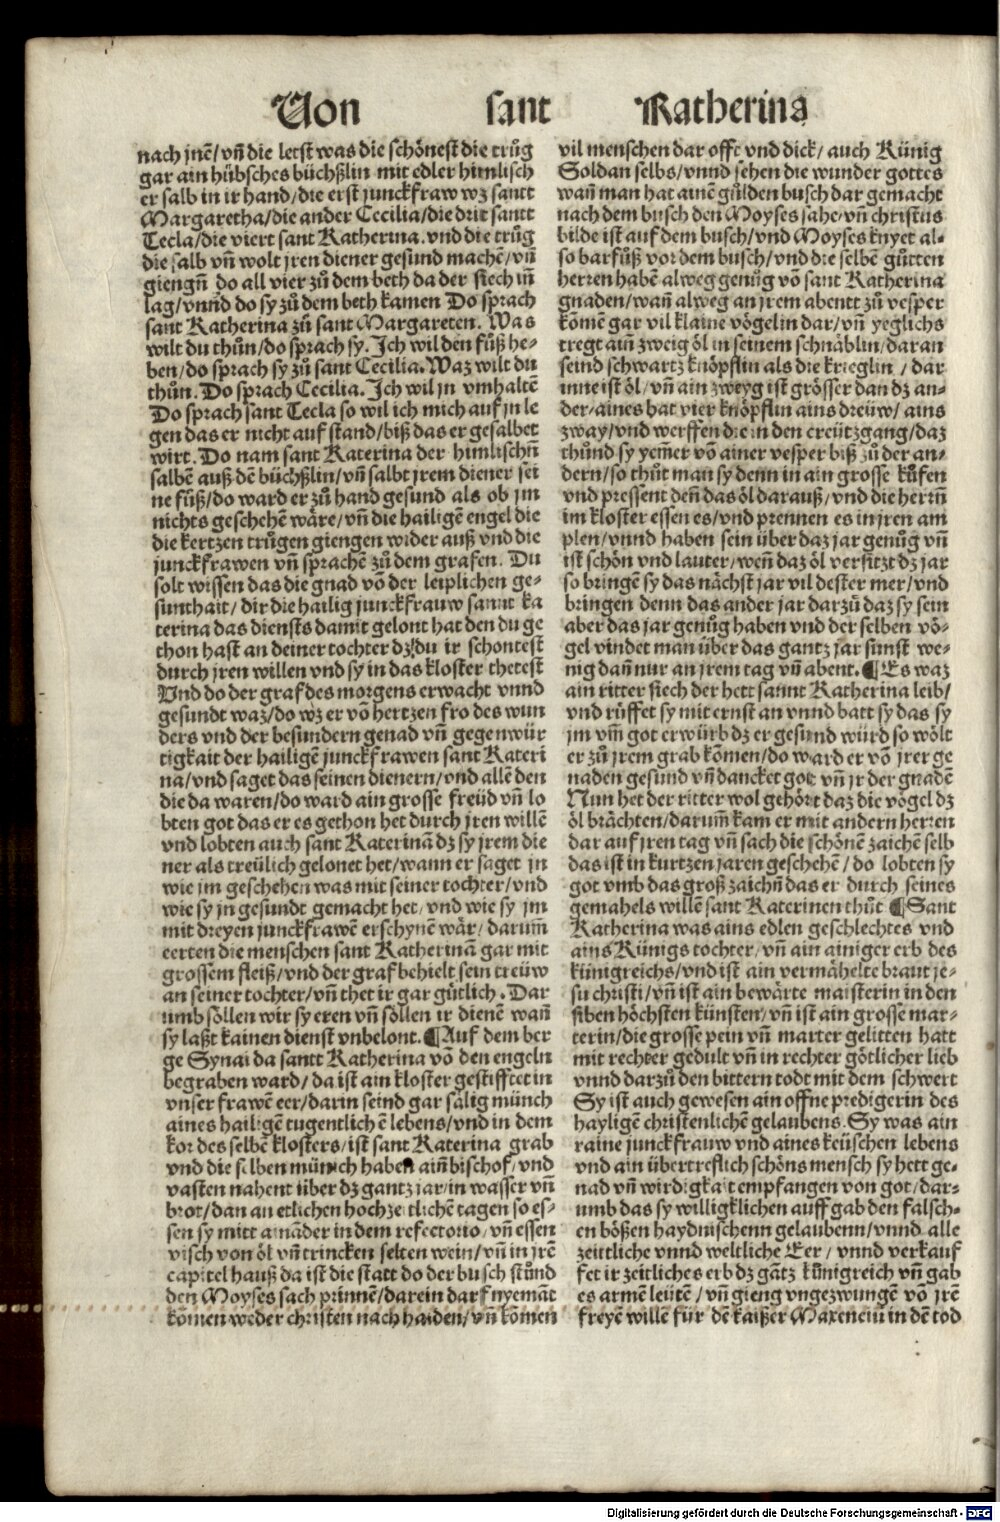 Von sant Katherina
nach jnē/vñ die letst was die schönest die trůg
gar ain hübsches büchßlin mit edler himlisch
er salb in ir hand/die erst junckfraw wz santt
Margaretha/die ander Cecilia/die drit santt
Tecla/die viert sant Katherina.vnd die trůg
die salb vñ wolt jren diener gesund machē/vñ
giengñ do all vier zů dem beth da der siech iñ
lag/vnnd do sy zů dem beth kamen Do sprach
sant Katherina zů sant Margareten. Was
wilt du thůn/do sprach sy. Ich wil den fůß he⸗
ben/do sprach sy zů sant Cecilia. Waz wilt du
thůn. Do sprach Cecilia. Ich wil jn vmhaltē
Do sprach sant Tecla so wil ich mich auf jn le
gen das er nicht auf stand/biß das er gesalbet
wirt. Do nam sant Katerina der himlischñ
salbē auß dē büchßlin/vñ salbt jrem diener sei
ne füß/do ward er zů hand gesund als ob jm
nichts geschehē wäre/vñ die hailigē engel die
die kertzen trůgen giengen wider auß vnd die
junckfrawen vñ sprachē zů dem grafen. Du
solt wissen das die gnad vō der leiplichen ge⸗
sunthait/dir die hailig junckfrauw sannt ka
terina das diensts damit gelont hat den du ge
thon hast an deiner tochter dz du ir schontest
durch jren willen vnd sy in das kloster thetest
Vnd do der graf des morgens erwacht vnnd
gesundt waz/do wz er vō hertzen fro des wun
ders vnd der besundern genad vñ gegenwür
tigkait der hailigē junckfrawen sant Kateri
na/vnd saget das seinen dienern/vnd allē den
die da waren/do ward ain grosse freüd vñ lo
bten got das er es gethon het durch jren willē
vnd lobten auch sant Katerinā dz sy jrem die
ner als treülich gelonet het/wann er saget jn
wie im geschehen was mit seiner tochter/vnd
wie sy jn gesundt gemacht het/vnd wie sy jm
mit dreyen junckfrawē erschynē wär/darum̄
eerten die menschen sant Katherinā gar mit
grossem fleiß/vnd der graf behielt sein treüw
an seiner tochter/vñ thet ir gar gütlich. Dar
umb söllen wir sy eren vñ söllen ir dienē wañ
sy laßt kainen dienst vnbelont. ¶Auf dem ber
ge Synai da santt Katherina vō den engeln
begraben ward/da ist ain kloster gestifftet in
vnser frawē eer/darin seind gar sälig münch
aines hailigē tugentlichē lebens/vnd in dem
kor des selbē klosters/ist sant Katerina grab
vnd die selben münich haben aiñ bischof/vnd
vasten nahent über dz gantz jar/in wasser vñ
brot/dan an etlichen hochzeitlichē tagen so es⸗
sen sy mitt aināder in dem refectorio/vñ essen
visch von öl vñ trincken selten wein/vñ in jrē
capitel hauß da ist die statt do der busch stůnd
den Moyses sach prinnē/darein darf nyemāt
kōmen weder christen nach haiden/vñ kōmen
vil menschen dar offt vnd dick/auch Künig
Soldan selbs/vnnd sehen die wunder gottes
wañ man hat ainē gůlden busch dar gemacht
nach dem busch den Moyses sahe/vñ christus
bilde ist auf dem busch/vnd Moyses knyet al⸗
so barfůß vor dem busch/vnd die selbē gůtten
herren habē alweg genůg vō sant Katherina
gnaden/wañ alweg an jrem abentt zů vesper
kōmē gar vil klaine vögelin dar/vñ yeglichs
tregt aiñ zweig öl in seinem schnäblin/daran
seind schwartz knöpflin als die krieglin/dar
inne ist öl/vñ ain zweyg ist grösser dan dz an⸗
der/aines hat vier knöpflin ains dreüw/ains
zway/vnd werffen die in den creützgang/daz
thůnd sy yem̄er vō ainer vesper biß zů der an⸗
dern/so thůt man sy denn in ain grosse kůfen
vnd pressent deñ das öl darauß/vnd die herrñ
im kloster essen es/vnd prennen es in jren am
plen/vnnd haben sein über daz jar genůg vñ
ist schön vnd lauter/weñ daz öl versitzt dz jar
so bringē sy das nächst jar vil dester mer/vnd
bringen denn das ander jar darzů daz sy sein
aber das jar genůg haben vnd der selben vö⸗
gel vindet man über das gantz jar sunst we⸗
nig dañ nur an jrem tag vñ abent. ¶Es waz
ain ritter siech der hett sannt Katherina leib/
vnd růffet sy mit ernst an vnnd batt sy das sy
jm vm̄ got erwürb dz er gesund würd so wölt
er zů jrem grab kōmen/do ward er vō jrer ge
naden gesund vñ dancket got vñ jr der gnadē
Nun het der ritter wol gehört daz die vögel dz
öl brächten/darum̄ kam er mit andern herren
dar auf jren tag vñ sach die schönē zaichē selb
das ist in kurtzen jaren geschehē/do lobten sy
got vmb das groß zaichñ das er durch seines
gemahels willē sant Katerinen thůt ¶Sant
Katherina was ains edlen geschlechtes vnd
ains Künigs tochter/vñ ain ainiger erb des
künigreichs/vnd ist ain vermähelte braut je⸗
su christi/vñ ist ain bewärte maisterin in den
siben höchsten künsten/vñ ist ain grosse mar⸗
terin/die grosse pein vñ marter gelitten hatt
mit rechter gedult vñ in rechter götlicher lieb
vnnd darzů den bittern todt mit dem schwert
Sy ist auch gewesen ain offne predigerin des
hayligē christenlichē gelaubens. Sy was ain
raine junckfrauw vnd aines keüschen lebens
vnd ain übertreflich schöns mensch sy hett ge⸗
nad vñ wirdigkait empfangen von got/dar⸗
umb das sy willigklichen auff gab den falsch⸗
en bößen haydnischenn gelaubenn/vnnd alle
zeittliche vnnd weltliche Eer/vnnd verkauf
fet ir zeitliches erb dz gātz künigreich vñ gab
es armē leütē/vñ gieng vngezwungē vō jrē
freyē willē für dē kaißer Maxenciū in dē tod
Digitalisierung gefördert durch die Deutsche Forschungsgemeinschaft - DFG